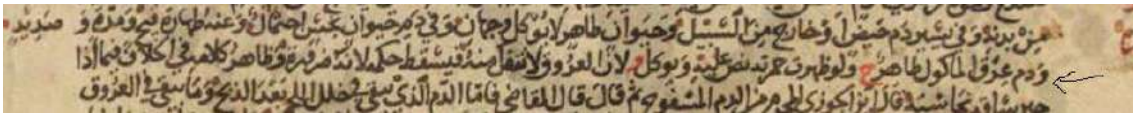 من بدنه وفي يسير دم حيض أو خارج من السبيل وحيوان طاهر لا يؤكل وجهان وفي دم حيوان نجس احتمال وعنه طهارة قيح ومدة و صديد
ودم عرق المأكول طاهر ولو ظهرت حمرته نص عليه ويؤكل لأن العروق لا تنفك منه فيسقط حكمه لأنه ضرورة وظاهر كلامه في
قال ابن الجوزي المحرم من الدم المسفوح ثم قال قال القاضي فأما الدم الذي يبقى في خلل اللحم بعد الذبح وما يبقى في العروق